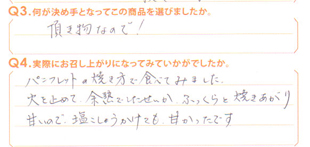 Q3.何が決め手となってこの商品を選びましたか。
頂き物なので!
Q4.実際にお召し上がりになってみていかがでしたか。
パンフレットの焼き方で食べてみました
火を止めて、余熱でしたせいか、ふっくらと焼きあがり
甘いので、塩こしょうかけても、甘かったです